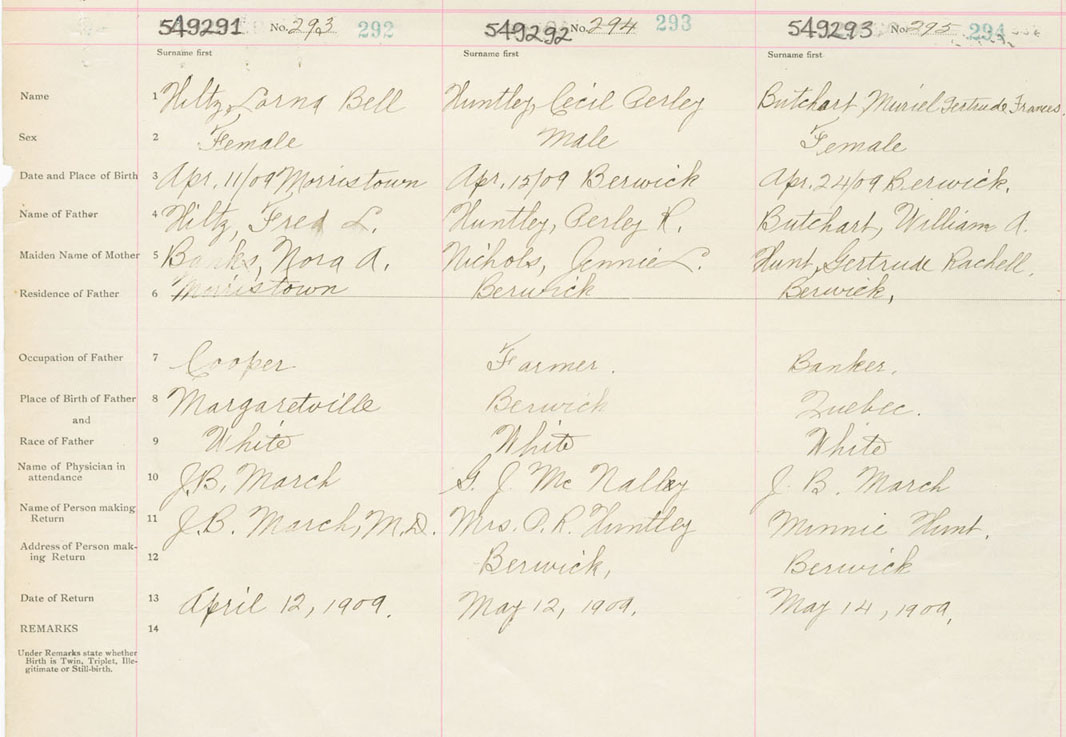 549291 No. 293 292 549292 No. 294 293 549293 No. 295 294
Surname first Surname first Surname first
Name 1 Hiltz, Lorna Bell Huntley, Cecil Perley Butchart Muriel Gertrude Frances.
Sex 2 Female Male Female
Date and Place of Birth 3 Apr. 11/09 Morristown Apr. 15/09 Berwick Apr. 24/09 Berwick.
Name of Father 4 Hiltz, Fred L. Huntley, Perley R. Butchart, William A.
Maiden Name of Mother 5 Banks, Nora A. Nichols, Jennie L. Hunt, Gertrude Rachell.
Residence of Father 6 Morristown Berwick Berwick,
Occupation of Father 7 Cooper Farmer. Banker.
Place of Birth of Father 8 Margaretville Berwick Quebec.
and
Race of Father 9 White White White
Name of Physician in
attendance 10 J.B. March G. J. McNalley J. B. March
Name of Person making
Return 11 J.B. March, M.D. Mrs. P. R. Huntley Minnie Hunt.
Address of Person mak-
ing Return 12 Berwick, Berwick
Date of Return 13 April 12, 1909. May 12, 1909. May 14, 1909.
REMARKS 14
Under Remarks state whether
Birth is Twin, Triplet, Ille-
gitimate or Still-birth.